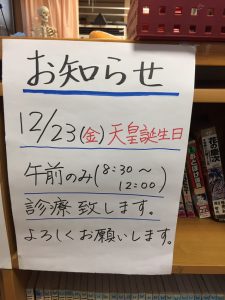 お知らせ
12/23(金)天皇誕生日
午前のみ(8:30〜
12:00)
診療致します。
よろしくお願いします。